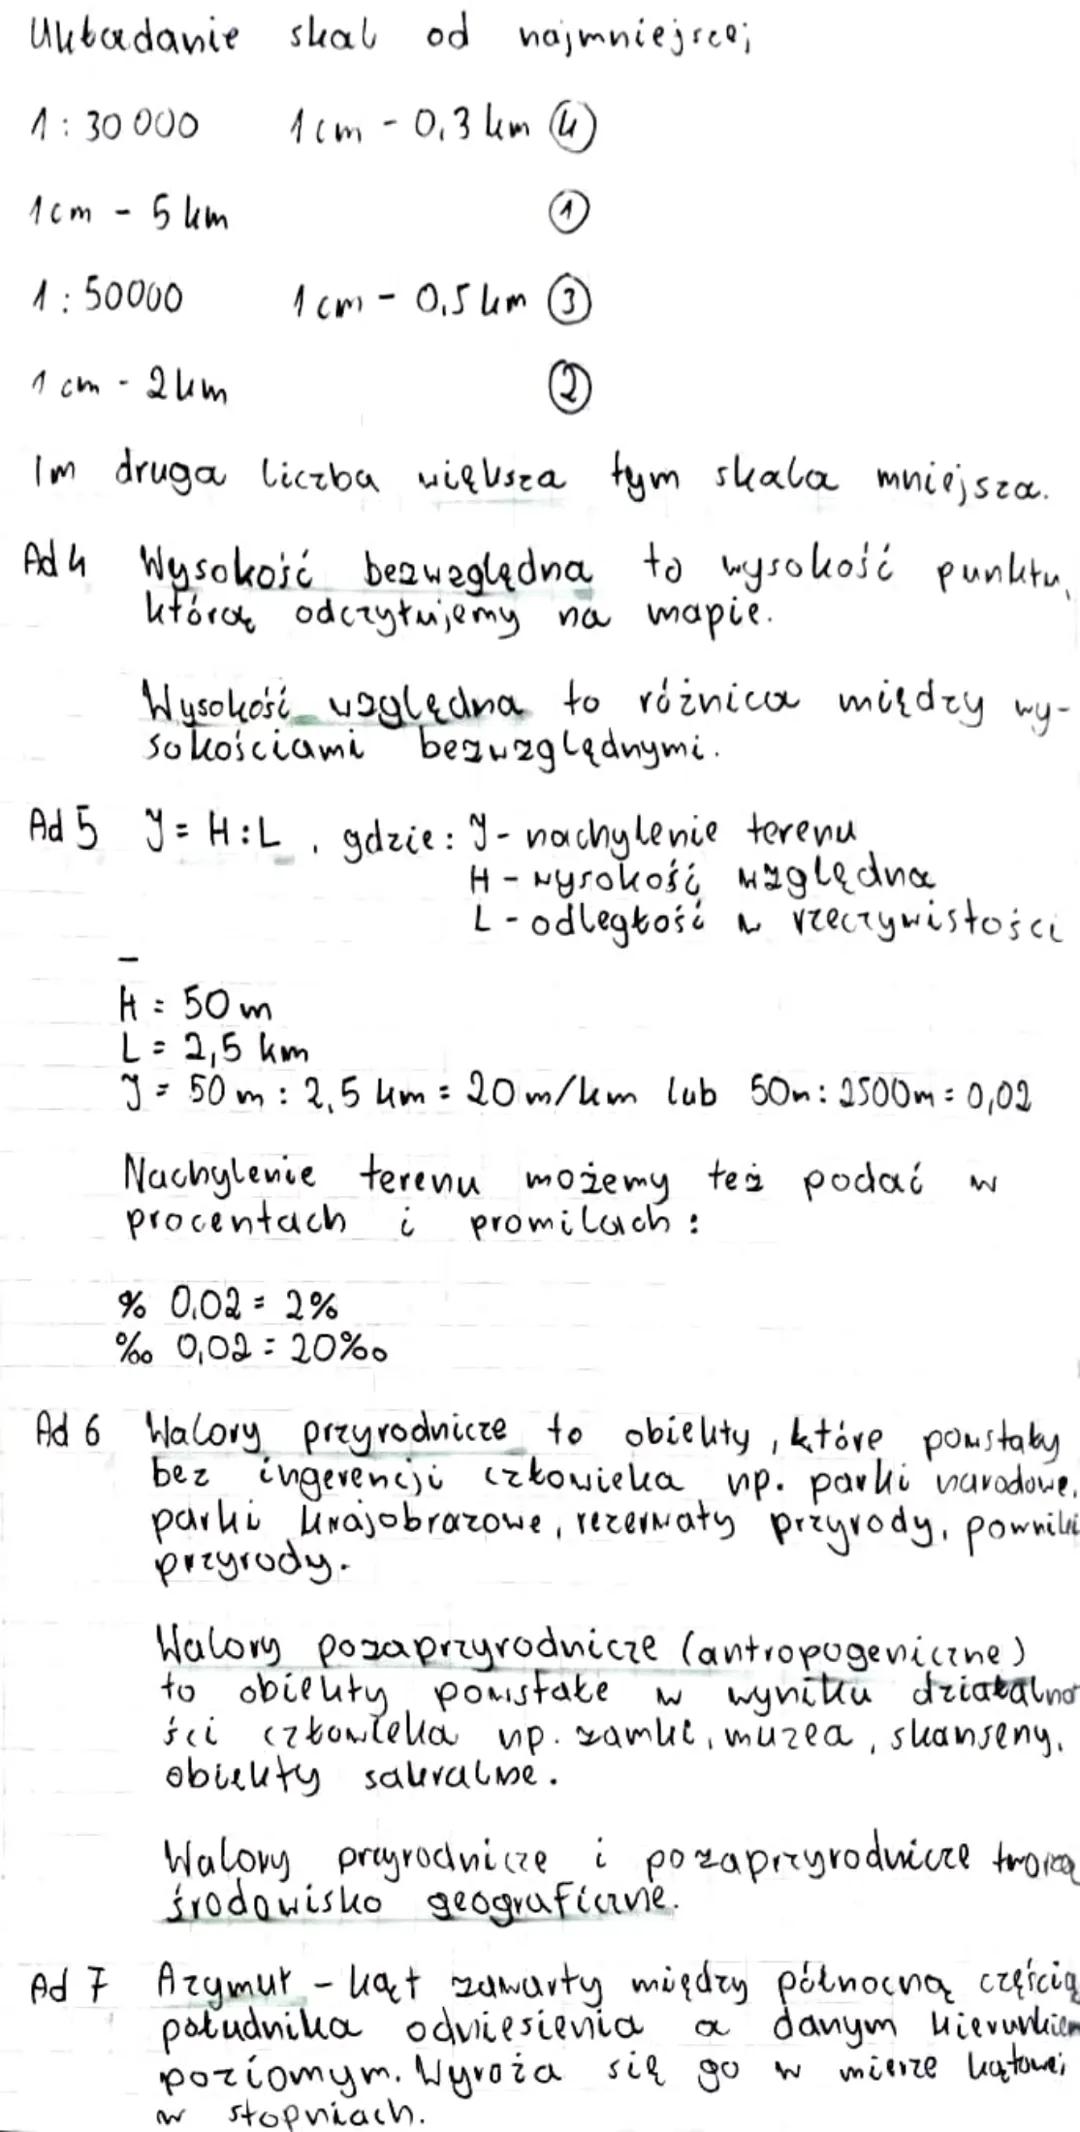 Układanie skal od najmniejszej
1 : 30 000 1 cm - 0,3 km ④
1cm - 5 km ①
1 : 50000 1 cm - 0,5 km ③
1 cm - 2 km ②
Im druga liczba większa tym skala mniejsza.
Ad 4 Wysokość bezwzględna to wysokość punktu,
którą odczytujemy na mapie.
Wysokość względna to różnica między wy-
sokościami bezwzględnymi.
Ad 5 J = H : L , gdzie : J - nachylenie terenu
H - wysokość względna
L - odległość w rzeczywistości
H = 50 m
L = 2,5 km
J = 50 m : 2,5 km = 20 m/km lub 50m : 2500m = 0,02
Nachylenie terenu możemy też podać w
procentach i promilach :
% 0,02 = 2%
‰ 0,02 = 20‰
Ad 6 Walory przyrodnicze to obiekty, które powstały
bez ingerencji człowieka np. parki narodowe,
parki krajobrazowe, rezerwaty przyrody, pomniki
przyrody.
Walory pozaprzyrodnicze (antropogeniczne)
to obiekty powstałe w wyniku działalno
ści człowieka np. zamki, muzea, skanseny,
obiekty sakralne.
Walory przyrodnicze i pozaprzyrodnicze tworzą
środowisko geograficzne.
Ad 7 Azymut - kąt zawarty między północną częścią
południka odniesienia a danym kierunkiem
poziomym. Wyraża się go w mierze kątowej
w stopniach.